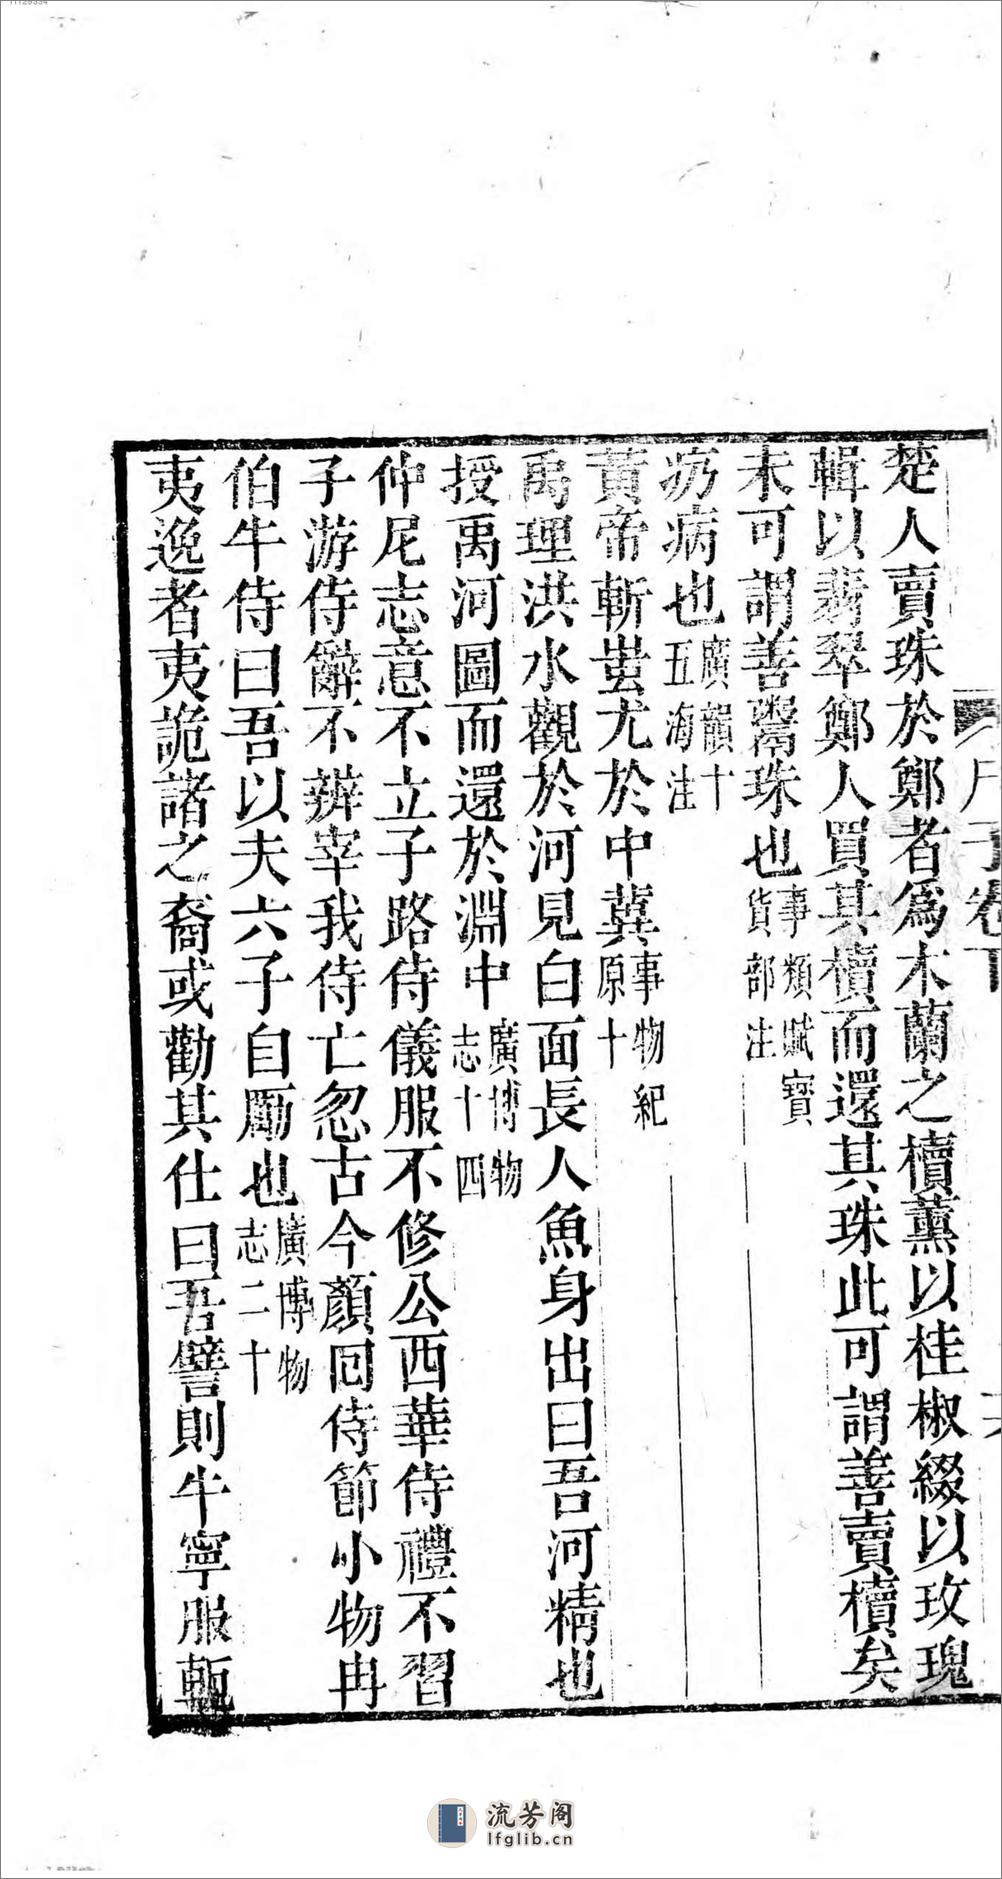 11129334
楚人賣珠於鄭者爲木蘭之櫝薰以桂椒綴以玫瑰
輯以翡翠鄭人買其櫝而還其珠此可謂善賣櫝矣
未可謂善鬻珠也事類賦寶貨部注
疓病也廣韻十五海注
黃帝斬蚩尤於中冀事物紀原十
禹理洪水觀於河見白面長人魚身出曰吾河精也
授禹河圖而還於淵中廣博物志十四
仲尼志意不立子路侍儀服不修公西華侍禮不習
子游侍辭不辨宰我侍亡忽古今顏回侍節小物冉
伯牛侍曰吾以夫六子自勵也廣博物志二十
夷逸者夷詭諸之裔或勸其仕曰吾譬則牛寧服軛
子卷下
流芳阁
lfglib.cn